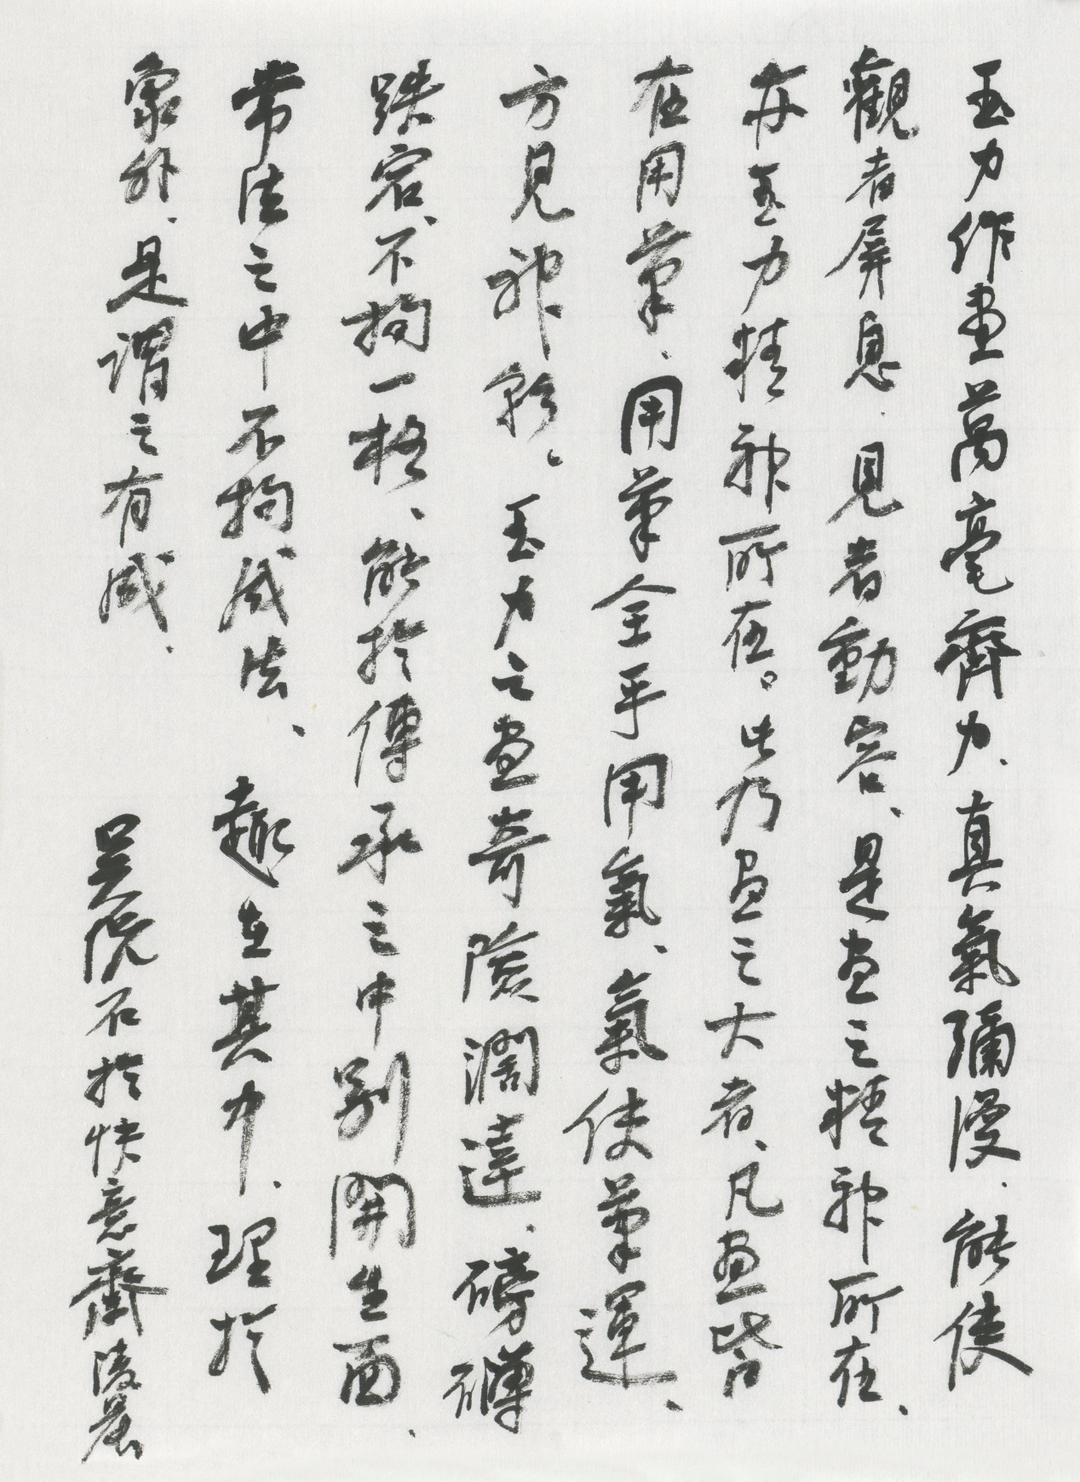 玉力作畫萬毫齊力、真氣彌漫、能使
觀者屏息、見者動容、是畫之精神所在、
亦玉力精神所在。此乃畫之大者、凡畫皆
在用筆、用筆全乎用氣、氣使筆運、
方見神彩。玉力之畫奇險濶達、磅礴
跌宕、不拘一格、能於傳承之中別開生面、
常法之中不拘成法、趣在其中、理於
象外、是謂之有成、
吴院石於快意齋凌晨